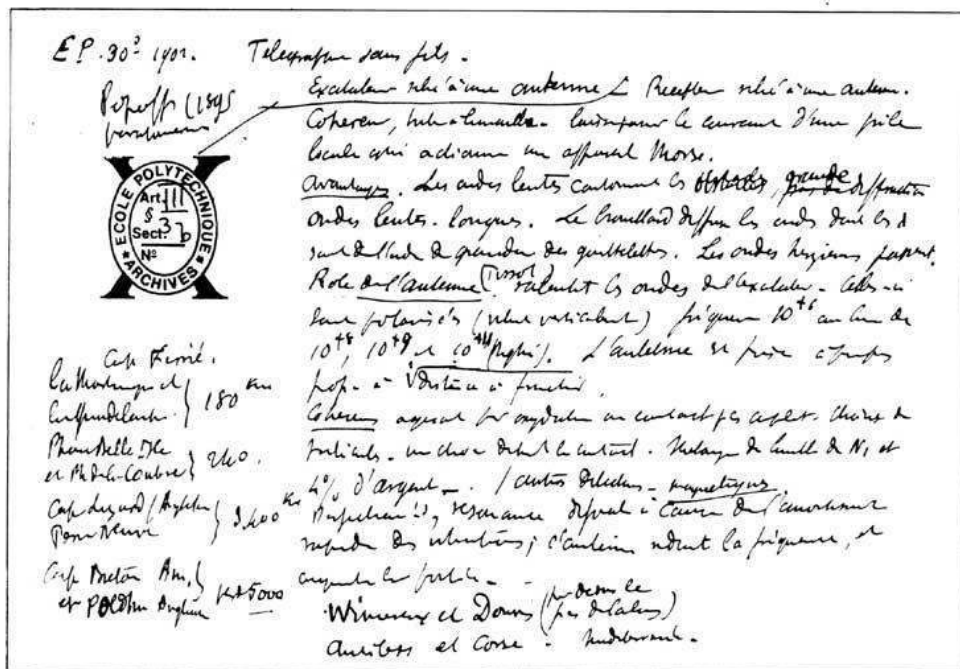 E P. 30² 1902. Telegraphie sans fils.
Popoff (1895
Excitateur relié à une antenne Recepteur relié à une antenne.
Cohereur, tube à limaille. le courant d'une pile
locale qui actionne un appareil Morse.
Avantages. Les ondes lentes contournent les obstacles, grande diffraction
ondes lentes. longues. Le brouillard diffuse les ondes dont les λ
sont de l'ordre de grandeur des gouttelettes. Les ondes hertziennes passent.
Role de l'antenne (Tissot) ralentit les ondes de l'excitateur. Celles-ci
sont polarisées (vibrent verticalement) fréquence 10⁺⁶ au lieu de
10⁺⁸, 10⁺⁹ et 10⁺¹¹ (Righi). L'antenne
prop. à √distance à franchir.
Cohereurs au contact
Melange de limaille de Ni et
4% d'argent. / autres détecteurs - magnétiques
resonance à cause de l'amortissement
rapide des vibrations; l'antenne réduit la fréquence, et
augmente la
Wimereux et Douvres (par dessus le
pas de Calais)
Antibes et Corse.
ECOLE POLYTECHNIQUE
ARCHIVES
Art. III
§ 3
Sect.
N°
X
Cap Ferrié.
La Martinique et
la Guadeloupe } 180 km
Phare Belle Isle
et Ph de la Coubre } 240.
Cap Lizard (Angleterre
Terre Neuve } 3.400 km
Cap Breton Am,
et Poldhu Angleterre } 5000